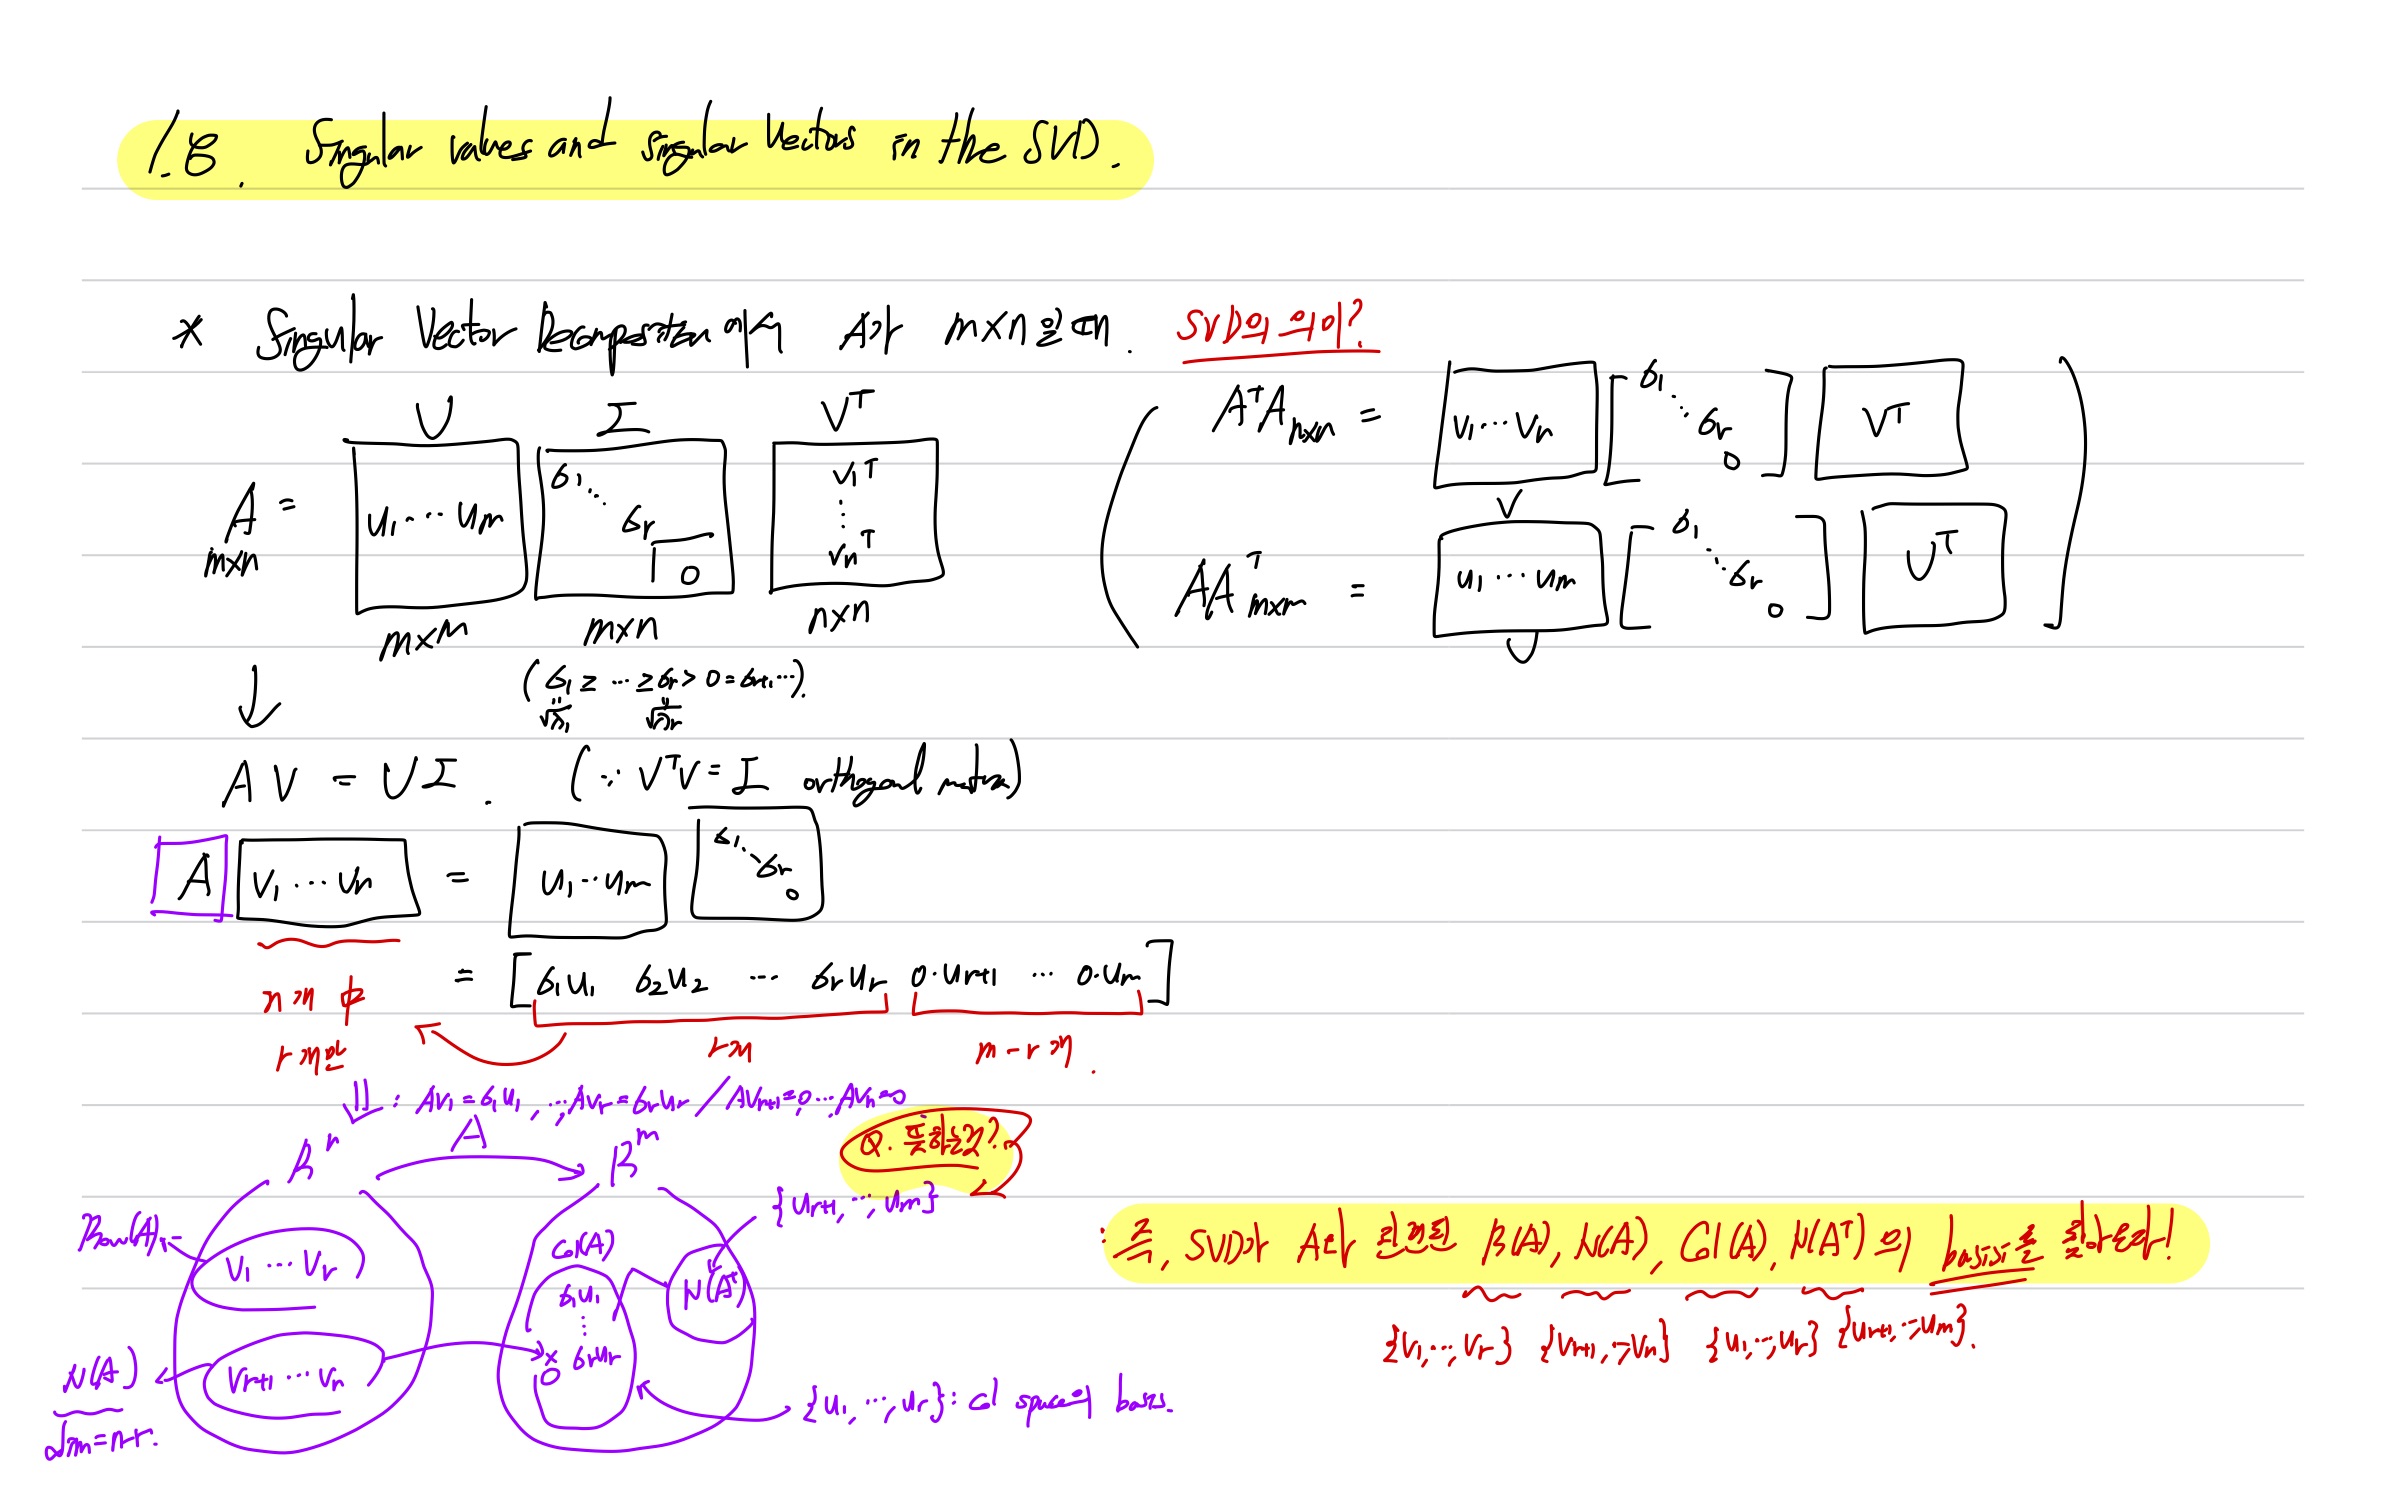 1.8. Singular values and singular vectors in the SVD.
* Singular Vector Decomposition 에서 A가 m×n일 때. SVD의 의미?
U Σ V^T
A = [u₁ ··· um] [σ₁ ⋱ σr 0] [v₁^T ⋮ vn^T]
m×n m×m m×n n×n
(σ₁ ≥ ··· ≥ σr > 0 = σr+1 ···).
√λ₁ √λr
A^T A n×n = [v₁ ··· vn] [σ₁ ⋱ σr 0] [V^T]
V
A A^T m×m = [u₁ ··· um] [σ₁ ⋱ σr 0] [U^T]
U
↓
AV = UΣ. (∵ V^T V = I orthogonal matrix)
A [v₁ ··· vn] = [u₁ ·· um] [σ₁ ⋱ σr 0]
= [σ₁u₁ σ₂u₂ ··· σrur 0·ur+1 ··· 0·um]
n개 中
r개만
r개
m-r개.
⇓ : Av₁ = σ₁u₁, ···, Avr = σrur / Avr+1 = 0, ···, Avn = 0
R^n A R^m
Q. 포함관계?
{ur+1, ···, um}
Row(A)
v₁ ··· vr
Col(A)
σ₁u₁
⋮
σrur
0
N(A^T)
N(A)
vr+1 ··· vn
dim = n-r.
{u₁, ···, ur} : col space의 basis.
: 즉, SVD가 A와 관계된 R(A), N(A), Col(A), N(A^T)의 basis를 찾아준다!
{v₁, ···, vr} {vr+1, ···, vn} {u₁, ···, ur} {ur+1, ···, um}.